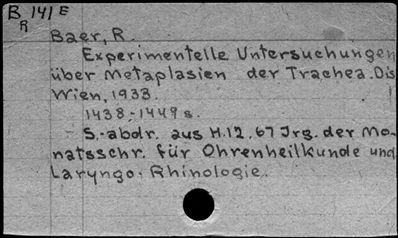 B 141 E
R
Baer, R.
Experimentelle Untersuchungen
über Metaplasien der Trachea. Dis
Wien, 1933.
1438.-1449 s.
S.-abdr. aus H.12. 67 Jrg. der Mo-
natsschr. für Ohrenheilkunde und
Laryngo-Rhinologie.